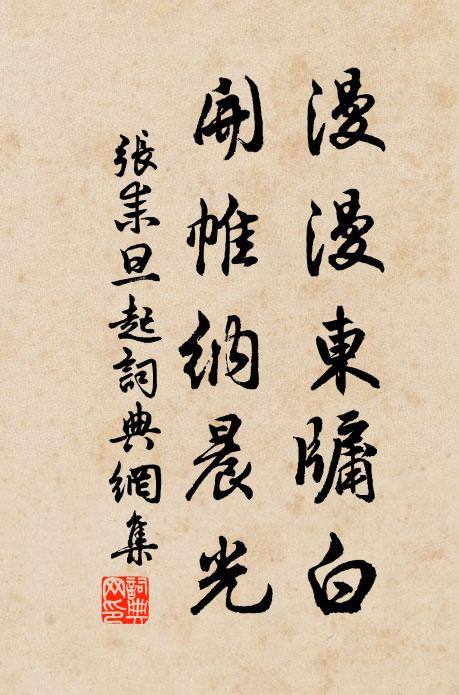 漫漫東牖白
開帷納晨光
張耒旦起詞典網集
詞典網印